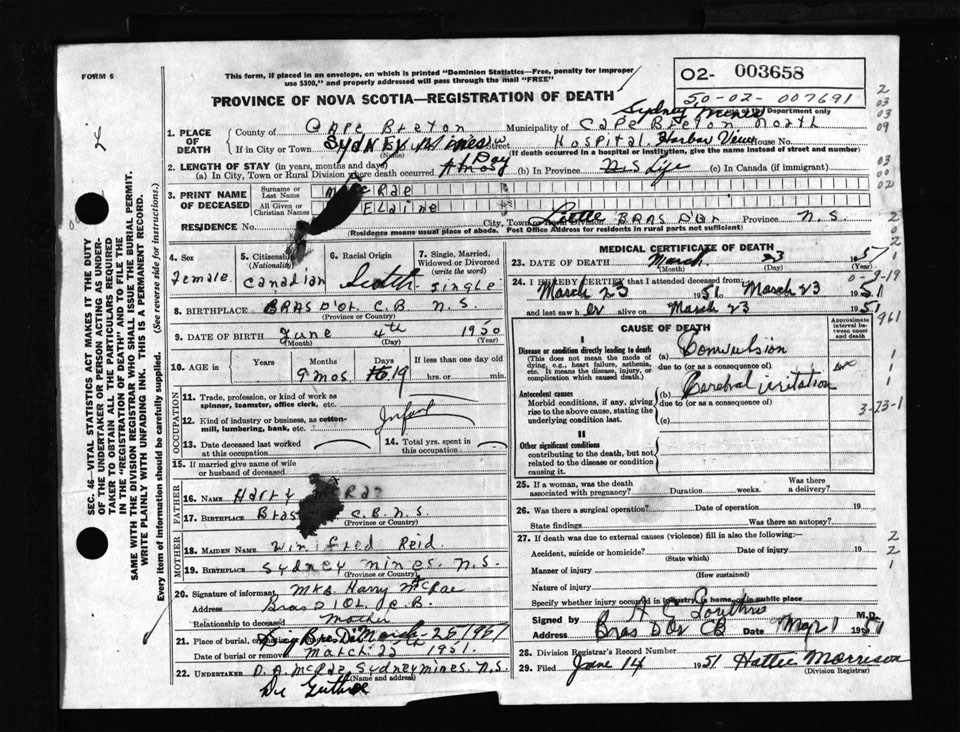 FORM 6
This form, if placed in an envelope, on which is printed "Dominion Statistics—Free, penalty for improper
use $300," and properly addressed will pass through the mail "FREE"
02- 003658
50-02-007691
PROVINCE OF NOVA SCOTIA—REGISTRATION OF DEATH
use of the Department only
1. PLACE OF DEATH
County of Cape Breton Municipality of Cape Breton North
If in City or Town Sydney Mines Hospital Harbor View House No.
(If death occurred in a hospital or institution, give the name instead of street and number)
2. LENGTH OF STAY (in years, months and days)
(a) In City, Town or Rural Division where death occurred (b) In Province N.S Life (c) In Canada (if immigrant)
3. PRINT NAME OF DECEASED
Surname or Last Name McRae
All Given or Christian Names Elaine
RESIDENCE No. City, Town Little BRAS D'Or Province N.S.
(Residence means usual place of abode. Post Office Address for residents in rural parts not sufficient)
4. Sex Female
5. Citizenship (Nationality) Canadian
6. Racial Origin Scotch
7. Single, Married, Widowed or Divorced (write the word) Single
8. BIRTHPLACE BRAS D'OR. C.B. N.S.
(Province or Country)
9. DATE OF BIRTH June 4th 1950
(Month) (Day) (Year)
10. AGE in Years Months Days If less than one day old
9 mos 19 hrs. or min.
OCCUPATION
11. Trade, profession, or kind of work as spinner, teamster, office clerk, etc.
12. Kind of industry or business, as cotton-mill, lumbering, bank, etc. Infant
13. Date deceased last worked at this occupation
14. Total yrs. spent in this occupation.
15. If married give name of wife or husband of deceased
FATHER
16. NAME Harry McRae
17. BIRTHPLACE Bras C.B. N.S.
(Province or Country)
MOTHER
18. MAIDEN NAME Winifred Reid
19. BIRTHPLACE Sydney Mines. N.S.
(Province or Country)
20. Signature of informant Mrs. Harry McRae
Address Bras D'Or C.B.
Relationship to deceased Mother
21. Place of burial,
Date of burial or removal March 25 1951.
22. UNDERTAKER D.A. McRae, Sydney Mines. N.S.
(Name and address)
MEDICAL CERTIFICATE OF DEATH
23. DATE OF DEATH March 23 1951
(Month) (Day) (Year)
24. I HEREBY CERTIFY that I attended deceased from
March 23 1951 to March 23 1951
and last saw her alive on March 23 1951
CAUSE OF DEATH
Approximate interval between onset and death
I
Disease or condition directly leading to death
(This does not mean the mode of dying, e.g., heart failure, asthenia, etc. It means the disease, injury, or complication which caused death.)
(a) Convulsion
due to (or as a consequence of)
Antecedent causes
Morbid conditions, if any, giving rise to the above cause, stating the underlying condition last.
(b) Cerebral irritation
due to (or as a consequence of)
(c)
II
Other significant conditions
contributing to the death, but not related to the disease or condition causing it.
25. If a woman, was the death associated with pregnancy? Duration weeks. Was there a delivery?
26. Was there a surgical operation? Date of operation 19
State findings Was there an autopsy?
27. If death was due to external causes (violence) fill in also the following:—
Accident, suicide or homicide? Date of injury 19
(State which)
Manner of injury
(How sustained)
Nature of injury
Specify whether injury occurred in industry, in home, or in public place
Signed by M.D.
Address Bras D'Or CB Date 1951
28. Division Registrar's Record Number
29. Filed June 14 1951 Hattie Morrison
(Division Registrar)
SEC. 46—VITAL STATISTICS ACT MAKES IT THE DUTY
OF THE UNDERTAKER OR PERSON ACTING AS UNDER-
TAKER TO OBTAIN ALL THE PARTICULARS REQUIRED
IN THE "REGISTRATION OF DEATH" AND TO FILE THE
SAME WITH THE DIVISION REGISTRAR WHO SHALL ISSUE THE BURIAL PERMIT.
WRITE PLAINLY WITH UNFADING INK. THIS IS A PERMANENT RECORD.
Every item of information should be carefully supplied. (See reverse side for instructions.)